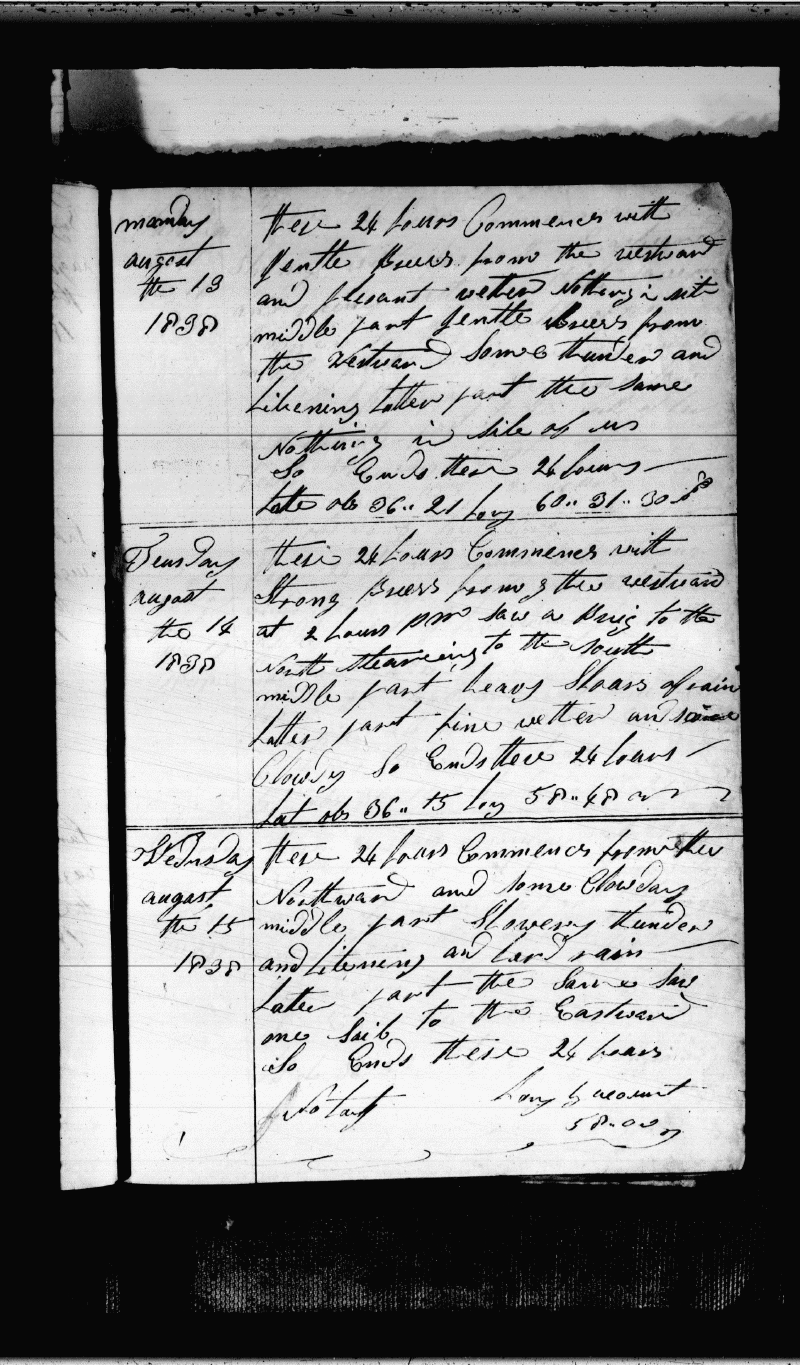 monday
august
the 13
1838
these 24 hours Commences with
gentle Brees from the westward
and plesant wether Nothing in site
middle part gentle Brees from
the Westward Some thunder and
Litening Latter part the Same
Nothing in site of us
So Ends these 24 hours
Latt obs 36.. 21 Long 60.. 31.. 30
Teusday
august
the 14
1838
these 24 hours Commences with
Strong Brees from the westward
at 2 hours PM Saw a Brig to the
North Stearing to the South
middle part heavy Shoars of rain
Latter part fine wether and some
Clowdy So Ends these 24 hours
Lat obs 36.. 15 Long 58.. 48
Wednsday
august
the 15
1838
these 24 hours Commences from the
Northward and some Clowday
middle part Showery thunder
and Litening and hard rain
Latter part the Same Saw
one Sail to the Eastward
So Ends these 24 hours
No Latt Long by acount
58..00